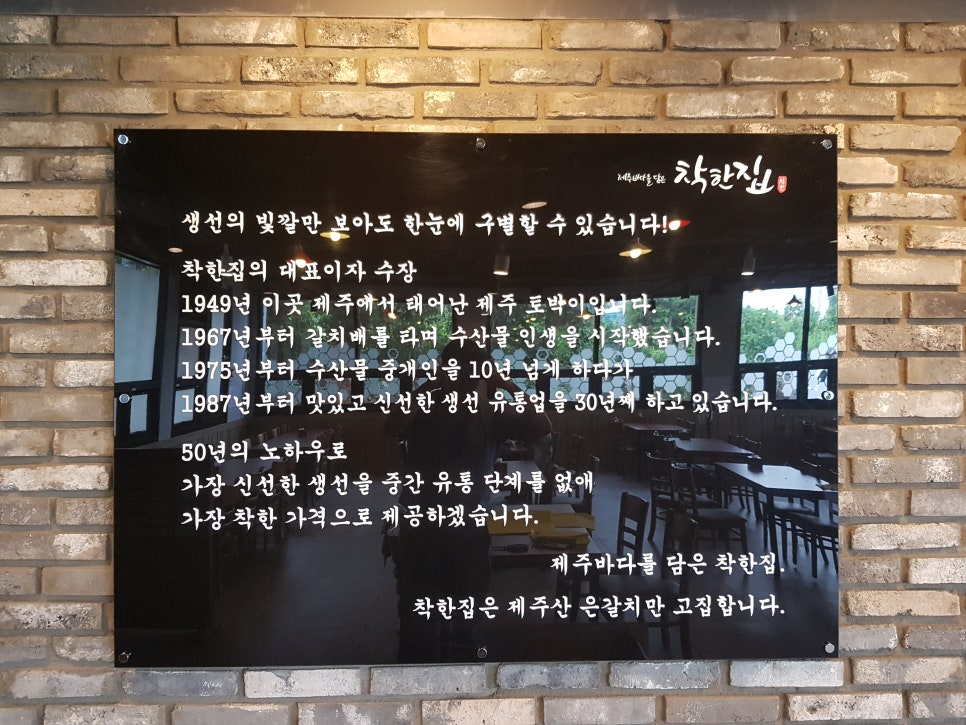 제주바다를 담은 착한집
생선의 빛깔만 보아도 한눈에 구별할 수 있습니다!
착한집의 대표이자 수장
1949년 이곳 제주에서 태어난 제주 토박이입니다.
1967년부터 갈치배를 타며 수산물 인생을 시작했습니다.
1975년부터 수산물 중개인을 10년 넘게 하다가
1987년부터 맛있고 신선한 생선 유통업을 30년째 하고 있습니다.
50년의 노하우로
가장 신선한 생선을 중간 유통 단계를 없애
가장 착한 가격으로 제공하겠습니다.
제주바다를 담은 착한집.
착한집은 제주산 은갈치만 고집합니다.